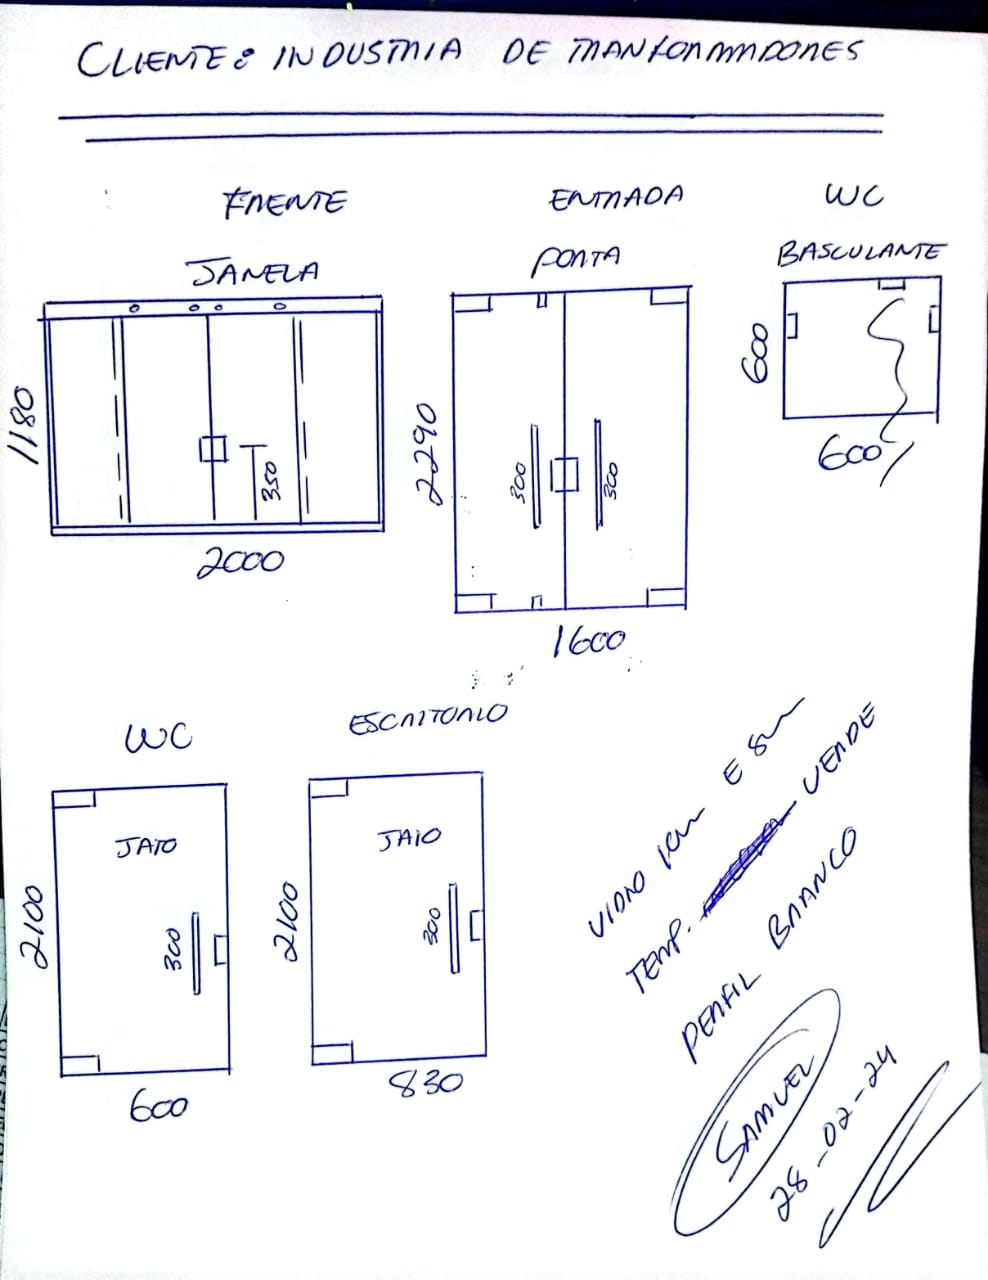 CLIENTE: INDUSTRIA DE TRANSFORMADORES
FRENTE
JANELA
1180
350
2000
ENTRADA
PORTA
2290
300
300
1600
WC
BASCULANTE
600
600
WC
JATO
2100
300
600
ESCRITORIO
JATO
2100
300
830
VIDRO E 8m
TEMP. VERDE
PERFIL BRANCO
SAMUEL
28-02-24